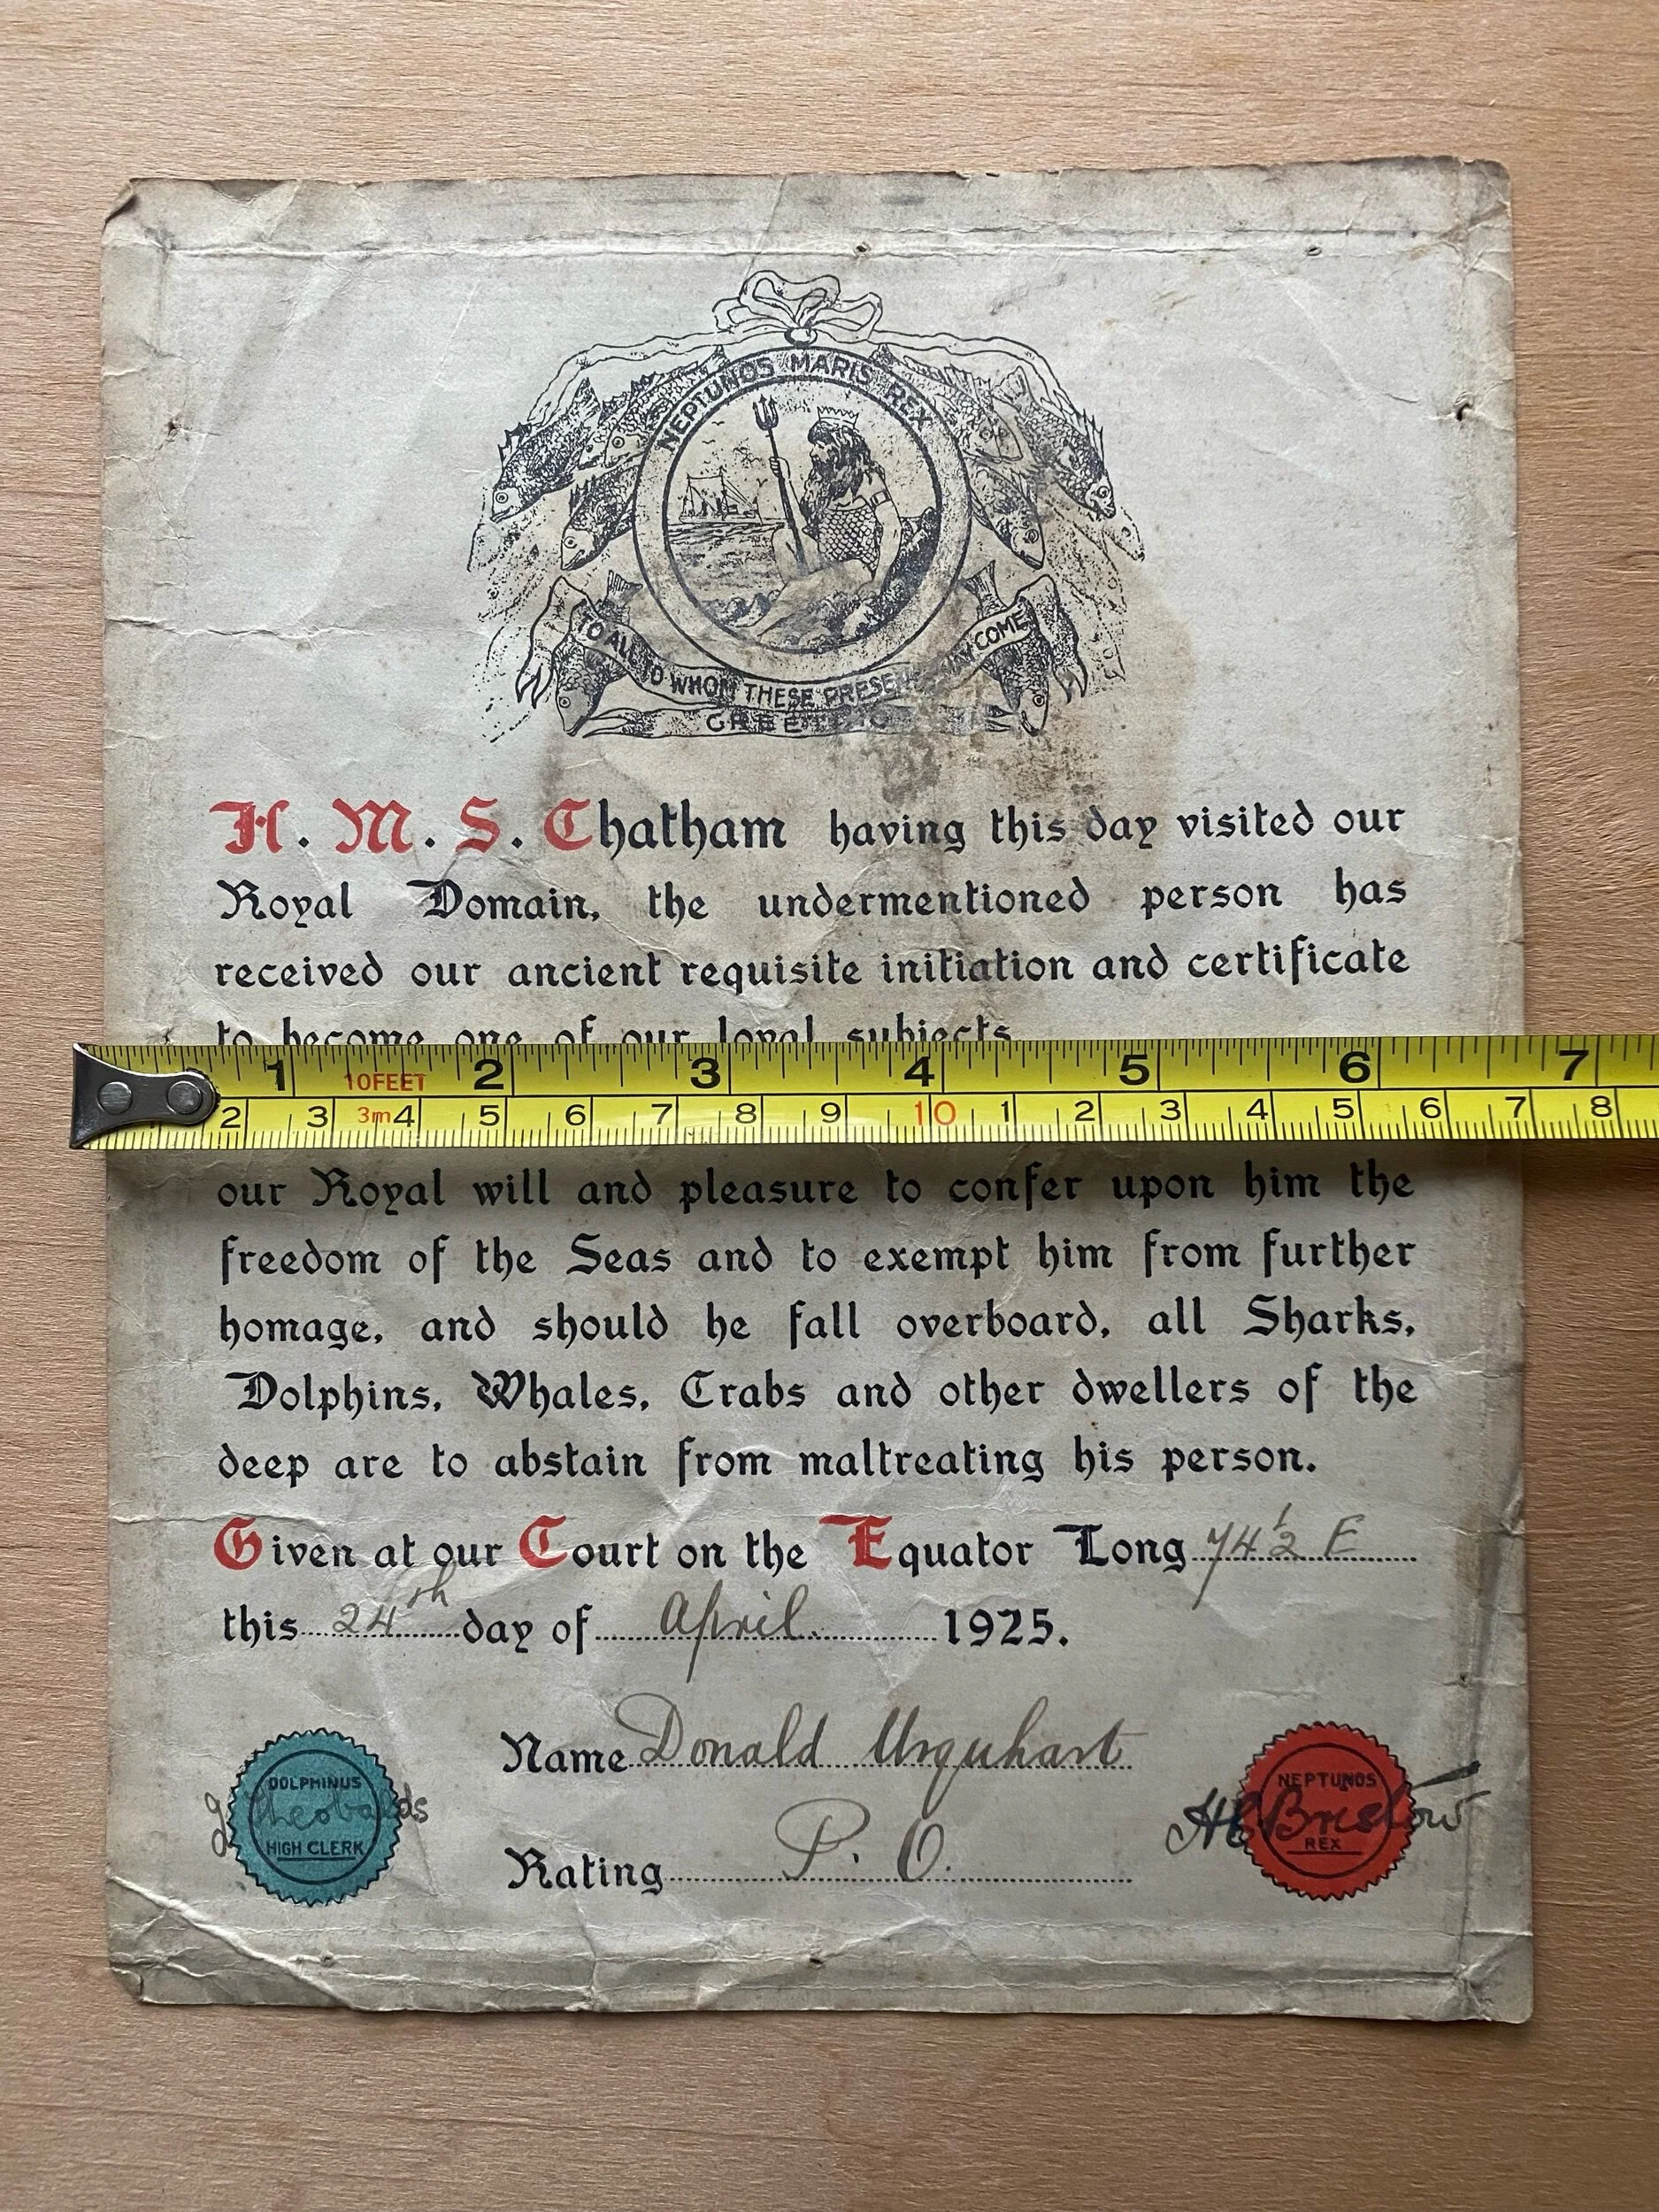 NEPTUNOS MARIS REX
TO ALL TO WHOM THESE PRESENTS MAY COME
GREETING
H. M. S. Chatham having this day visited our
Royal Domain, the undermentioned person has
received our ancient requisite initiation and certificate
to become one of our loyal subjects
1 10FEET 2 3 4 5 6 7
2 3 3m 4 5 6 7 8 9 10 1 2 3 4 5 6 7 8
our Royal will and pleasure to confer upon him the
freedom of the Seas and to exempt him from further
homage, and should he fall overboard, all Sharks,
Dolphins, Whales, Crabs and other dwellers of the
deep are to abstain from maltreating his person.
Given at our Court on the Equator Long 74½ E
this 24th day of April 1925.
Name Donald Urquhart
Rating P. O.
DOLPHINUS
Theobalds
HIGH CLERK
NEPTUNOS
REX